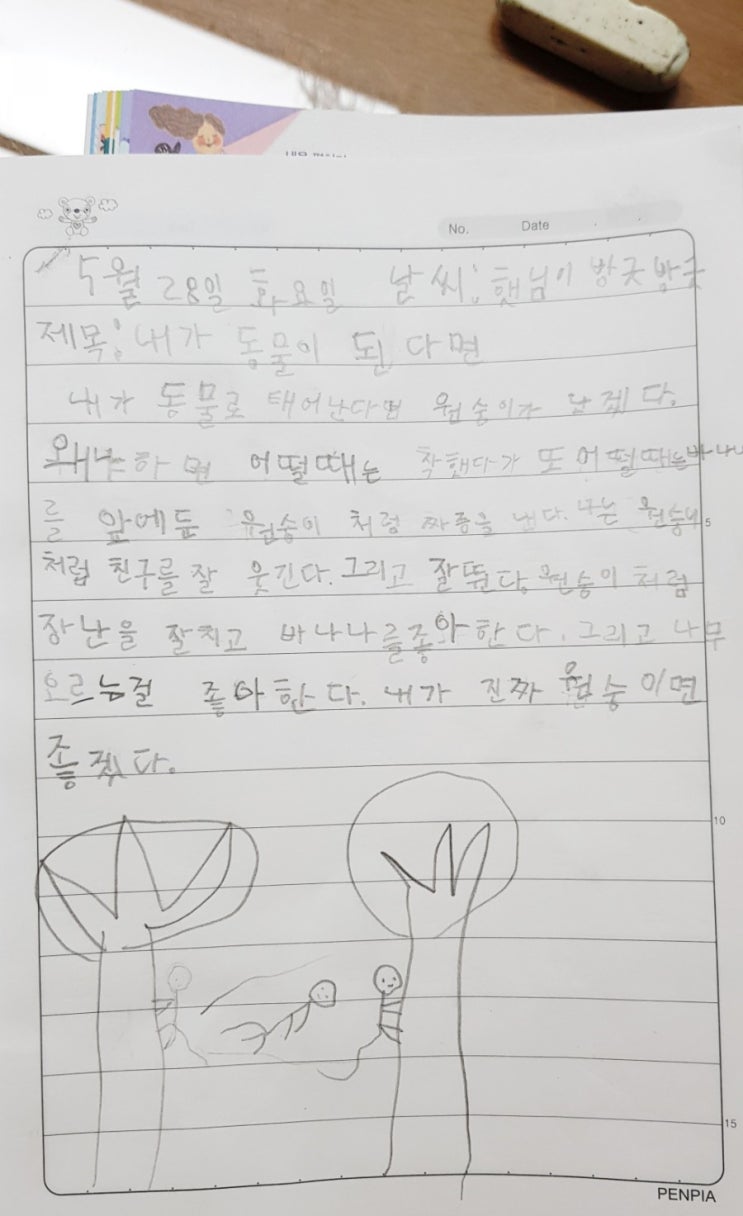 No. Date
5월 28일 화요일 날씨: 햇님이 방긋방긋
제목: 내가 동물이 된다면
내가 동물로 태어난다면 원숭이가 낫겠다.
왜냐하면 어떨때는 착했다가 또 어떨때는 바나나
를 앞에둔 원숭이 처럼 짜증을 낸다. 나는 원숭이
5
처럼 친구를 잘 웃긴다. 그리고 잘뛴다. 원숭이 처럼
장난을 잘치고 바나나를좋아한다. 그리고 나무
오르는걸 좋아한다. 내가 진짜 원숭이면
좋겠다.
10
15
PENPIA